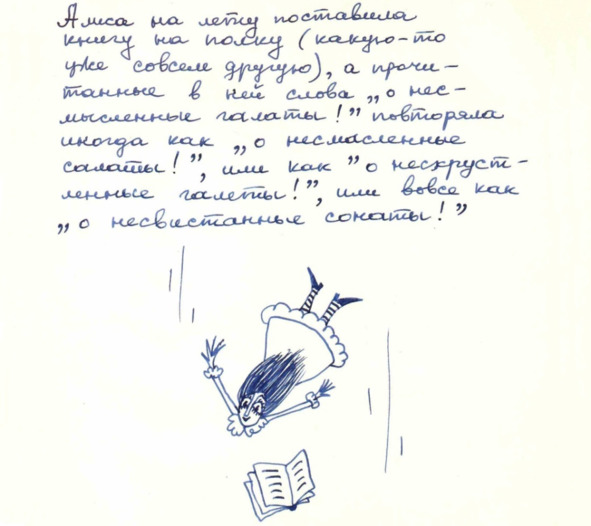 Алиса на лету поставила
книгу на полку (какую-то
уже совсем другую), а прочи-
танные в ней слова „о нес-
мысленные галаты!” повторяла
иногда как „о несмасленные
салаты!”, или как ”о нехруст-
ленные галеты!”, или вовсе как
„о несвистанные сонаты!”